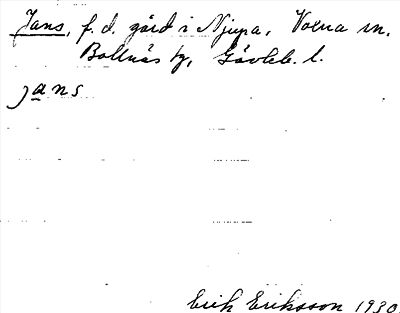 Jans, f.d. gård i Njupa, Voxna sn,
Bollnäs tg, Gävleb. l.
jans
Erik Eriksson 1930.